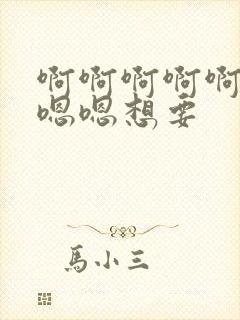 啊啊啊啊啊
嗯嗯想要
馬小三